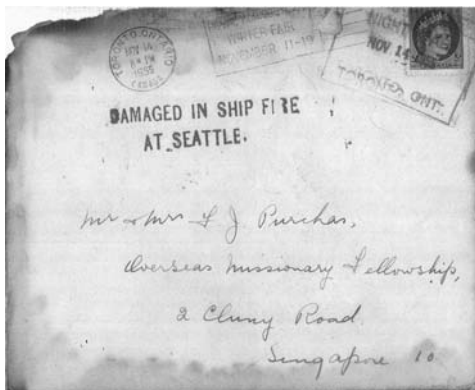 TORONTO, ONTARIO
NOV 14
1955
CANADA
WINTER FAIR
NOVEMBER 11-19
NIGHT
NOV 14
TORONTO, ONT.
DAMAGED IN SHIP FIRE
AT SEATTLE.
Mr & Mrs F J Purchas,
Overseas Missionary Fellowship,
2 Cluny Road.
Singapore 10